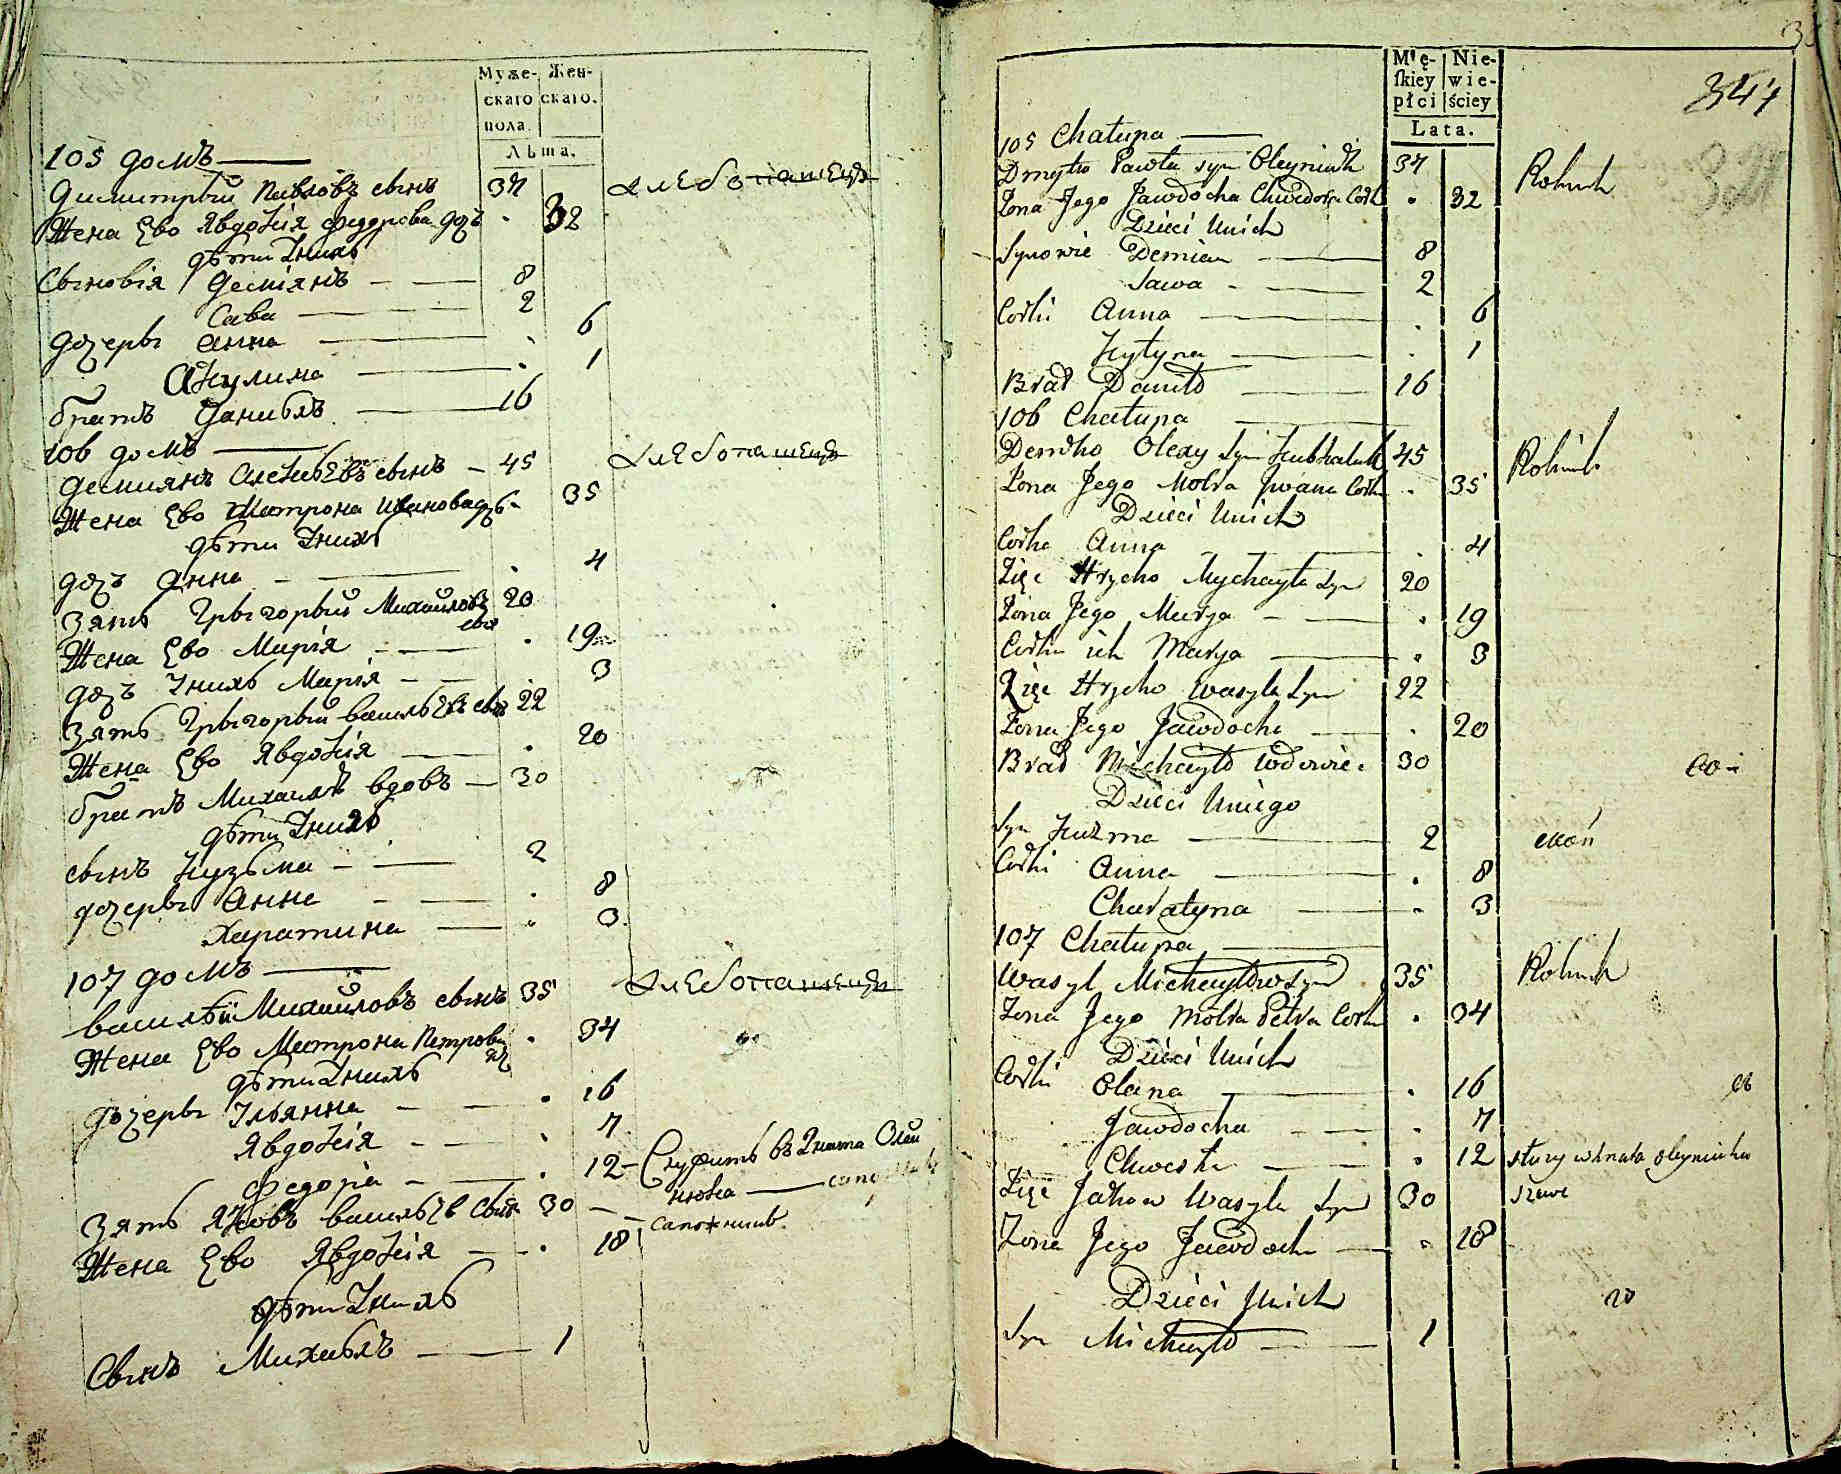 Муже-
скаго
пола.
Жен-
скаго.
Лѣта.
105 домъ
Димитрый Павловъ сынъ 37 хлебопашецъ
Жена Ево Явдокія Федорова доч 32
дѣти Ихъ
Сыновія Деміянъ 8
Сава 2
дочеры Анна 6
Акулина 1
братъ Данибль 16
106 домъ
Демиянъ Алексѣевъ сынъ 45 хлебопашецъ
Жена Ево Матрона Иванова доч 35
дѣти Ихъ
дочъ Анна 4
Зять Грыгорый Михайловъ сын 20
Жена Ево Марія 19
дочъ Ихъ Марія 3
Зять Грыгорый василь сын 22
Жена Ево Явдокія 20
братъ Михаилъ вдовъ 30
дѣти
сынъ Кузьма 2
дочеры Анна 8
Харатина 3
107 домъ
василѣй Михайловъ сынъ 35 хлебопашецъ
Жена Ево Матрона Петрова 34
дѣти
дочеры Ульянна 16
Явдокія 7
Федорія 12 Служитъ
Зять Яковъ 30 сапожникъ
Жена Ево Явдокія 18
дѣти
Сынъ Михаѣлъ 1
Mę-
skiey
płci
Nie-
wie-
ściey
Lata.
344
105 Chałupa
Dmytro Pawła syn Oleyniuk 37 Rolnik
Żona Jego Jawdocha Chwedora Córka 32
Dzieci Unich
Synowie Demian 8
Sawa 2
Córki Anna 6
1
Brat Daniło 16
106 Chałupa
Demko Olexy Syn 45 Rolnik
Żona Jego Motra Jwana Córka 35
Dzieci Unich
Córka Anna 4
Zięć Hrycko Mychayła Syn 20
Żona Jego Marya 19
Córka ich Marya 3
Zięć Hrycko Wasyla Syn 22
Żona Jego Jawdocha 20
Brat Michayło wdowiec 30
Dzieci Uniego
Syn Kuzma 2
Córki Anna 8
Charatyna 3
107 Chałupa
Wasyl Michayłow Syn 35 Rolnik
Żona Jego Motra Petra Córka 34
Dzieci Unich
Córki Olana 16
Jawdocha 7
Chweska 12 służy
Zięć Jakow Wasyla Syn 30 Szewc
Żona Jego Jawdocha 18
Dzieci Unich
Syn Michayło 1